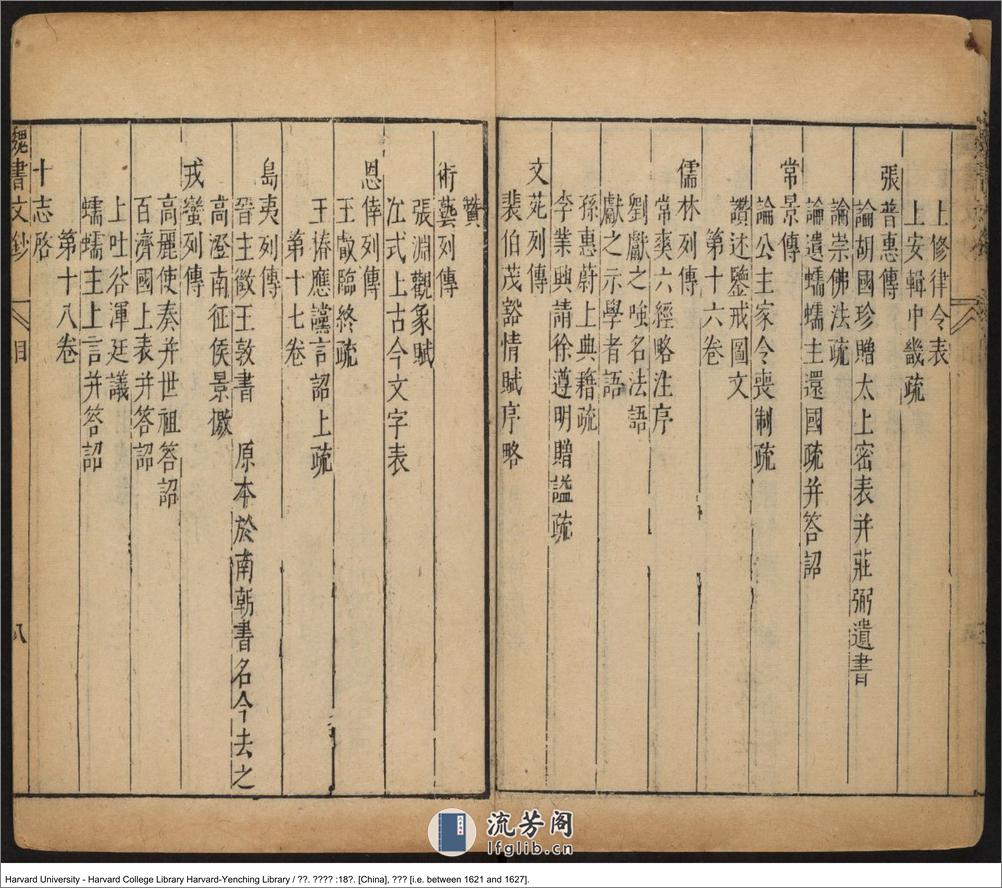 上修律令表
上安輯中畿疏
張普惠傳
論胡國珍贈太上密表并莊弼遺書
論崇佛法疏
論遣蠕蠕主還國疏并答詔
常景傳
論公主家令喪制疏
讚述鑒戒圖文
第十六卷
儒林列傳
常爽六經略注序
劉獻之嗤名法語
獻之示學者語
孫惠蔚上典籍疏
李業興請徐遵明贈謚疏
文苑列傳
裴伯茂豁情賦序略
贊
術藝列傳
張淵觀象賦
江式上古今文字表
恩倖列傳
王叡臨終疏
王椿應讜言詔上疏
第十七卷
島夷列傳
晉主徵王敦書 原本於南朝書名今去之
高澄南征侯景檄
戎蠻列傳
高麗使奏并世祖答詔
百濟國上表并答詔
上吐谷渾廷議
蠕蠕主上言并答詔
第十八卷
十志啓
魏書文鈔 目 八
流芳阁
lfglib.cn
Harvard University - Harvard College Library Harvard-Yenching Library / ??. ???? :18?. [China], ??? [i.e. between 1621 and 1627].